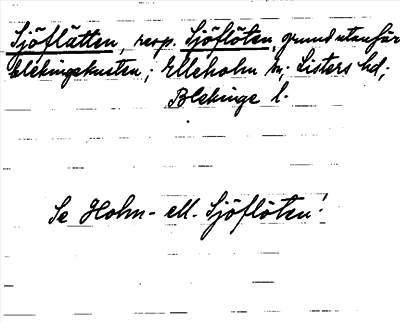 Sjöflätten, resp. Sjöflöten, grund utanför
Blekingekusten; Elleholm sn; Listers hd;
Blekinge l.
Se Holm- ell. Sjöflöten!